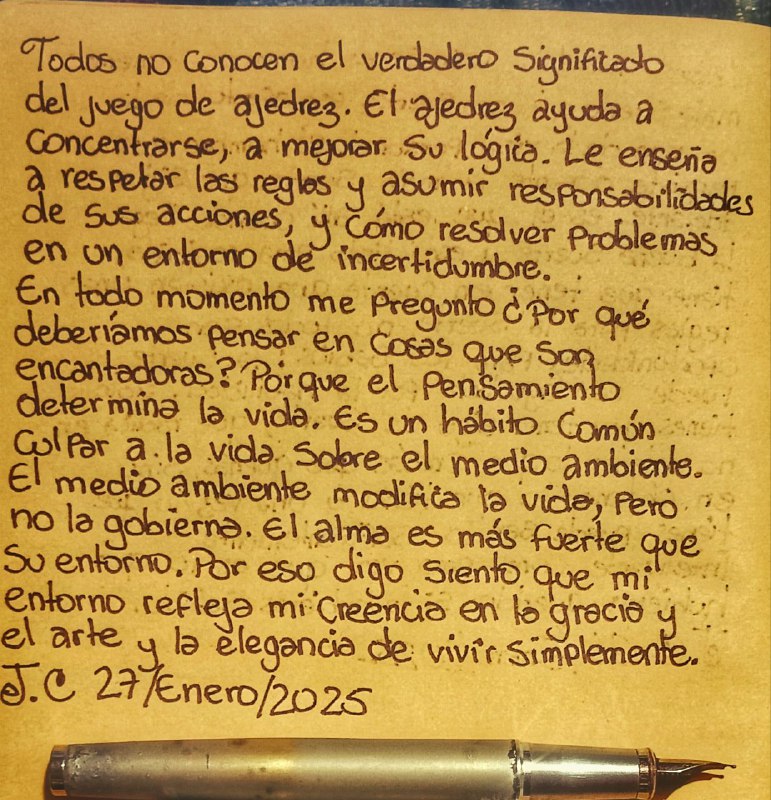 Todos no conocen el verdadero significado
del juego de ajedrez. El ajedrez ayuda a
concentrarse, a mejorar su lógica. Le enseña
a respetar las reglas y asumir responsabilidades
de sus acciones, y cómo resolver problemas
en un entorno de incertidumbre.
En todo momento me pregunto ¿Por qué
deberíamos pensar en cosas que son
encantadoras? Porque el pensamiento
determina la vida. Es un hábito común
culpar a la vida sobre el medio ambiente.
El medio ambiente modifica la vida, pero
no la gobierna. El alma es más fuerte que
su entorno. Por eso digo siento que mi
entorno refleja mi creencia en la gracia y
el arte y la elegancia de vivir simplemente.
J.C 27/Enero/2025